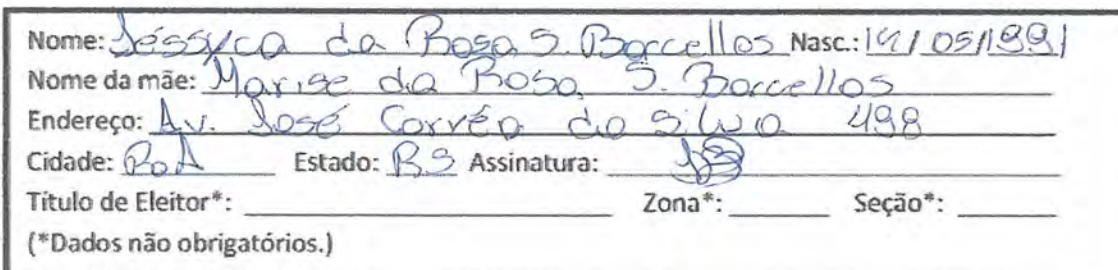 Nome: Jéssyca da Rosa S. Barcellos Nasc.: 19/05/1991
Nome da mãe: Marise da Rosa S. Barcellos
Endereço: Av. José Corrêa da Silva 498
Cidade: PoA Estado: RS Assinatura:
Título de Eleitor*: Zona*: Seção*:
(*Dados não obrigatórios.)